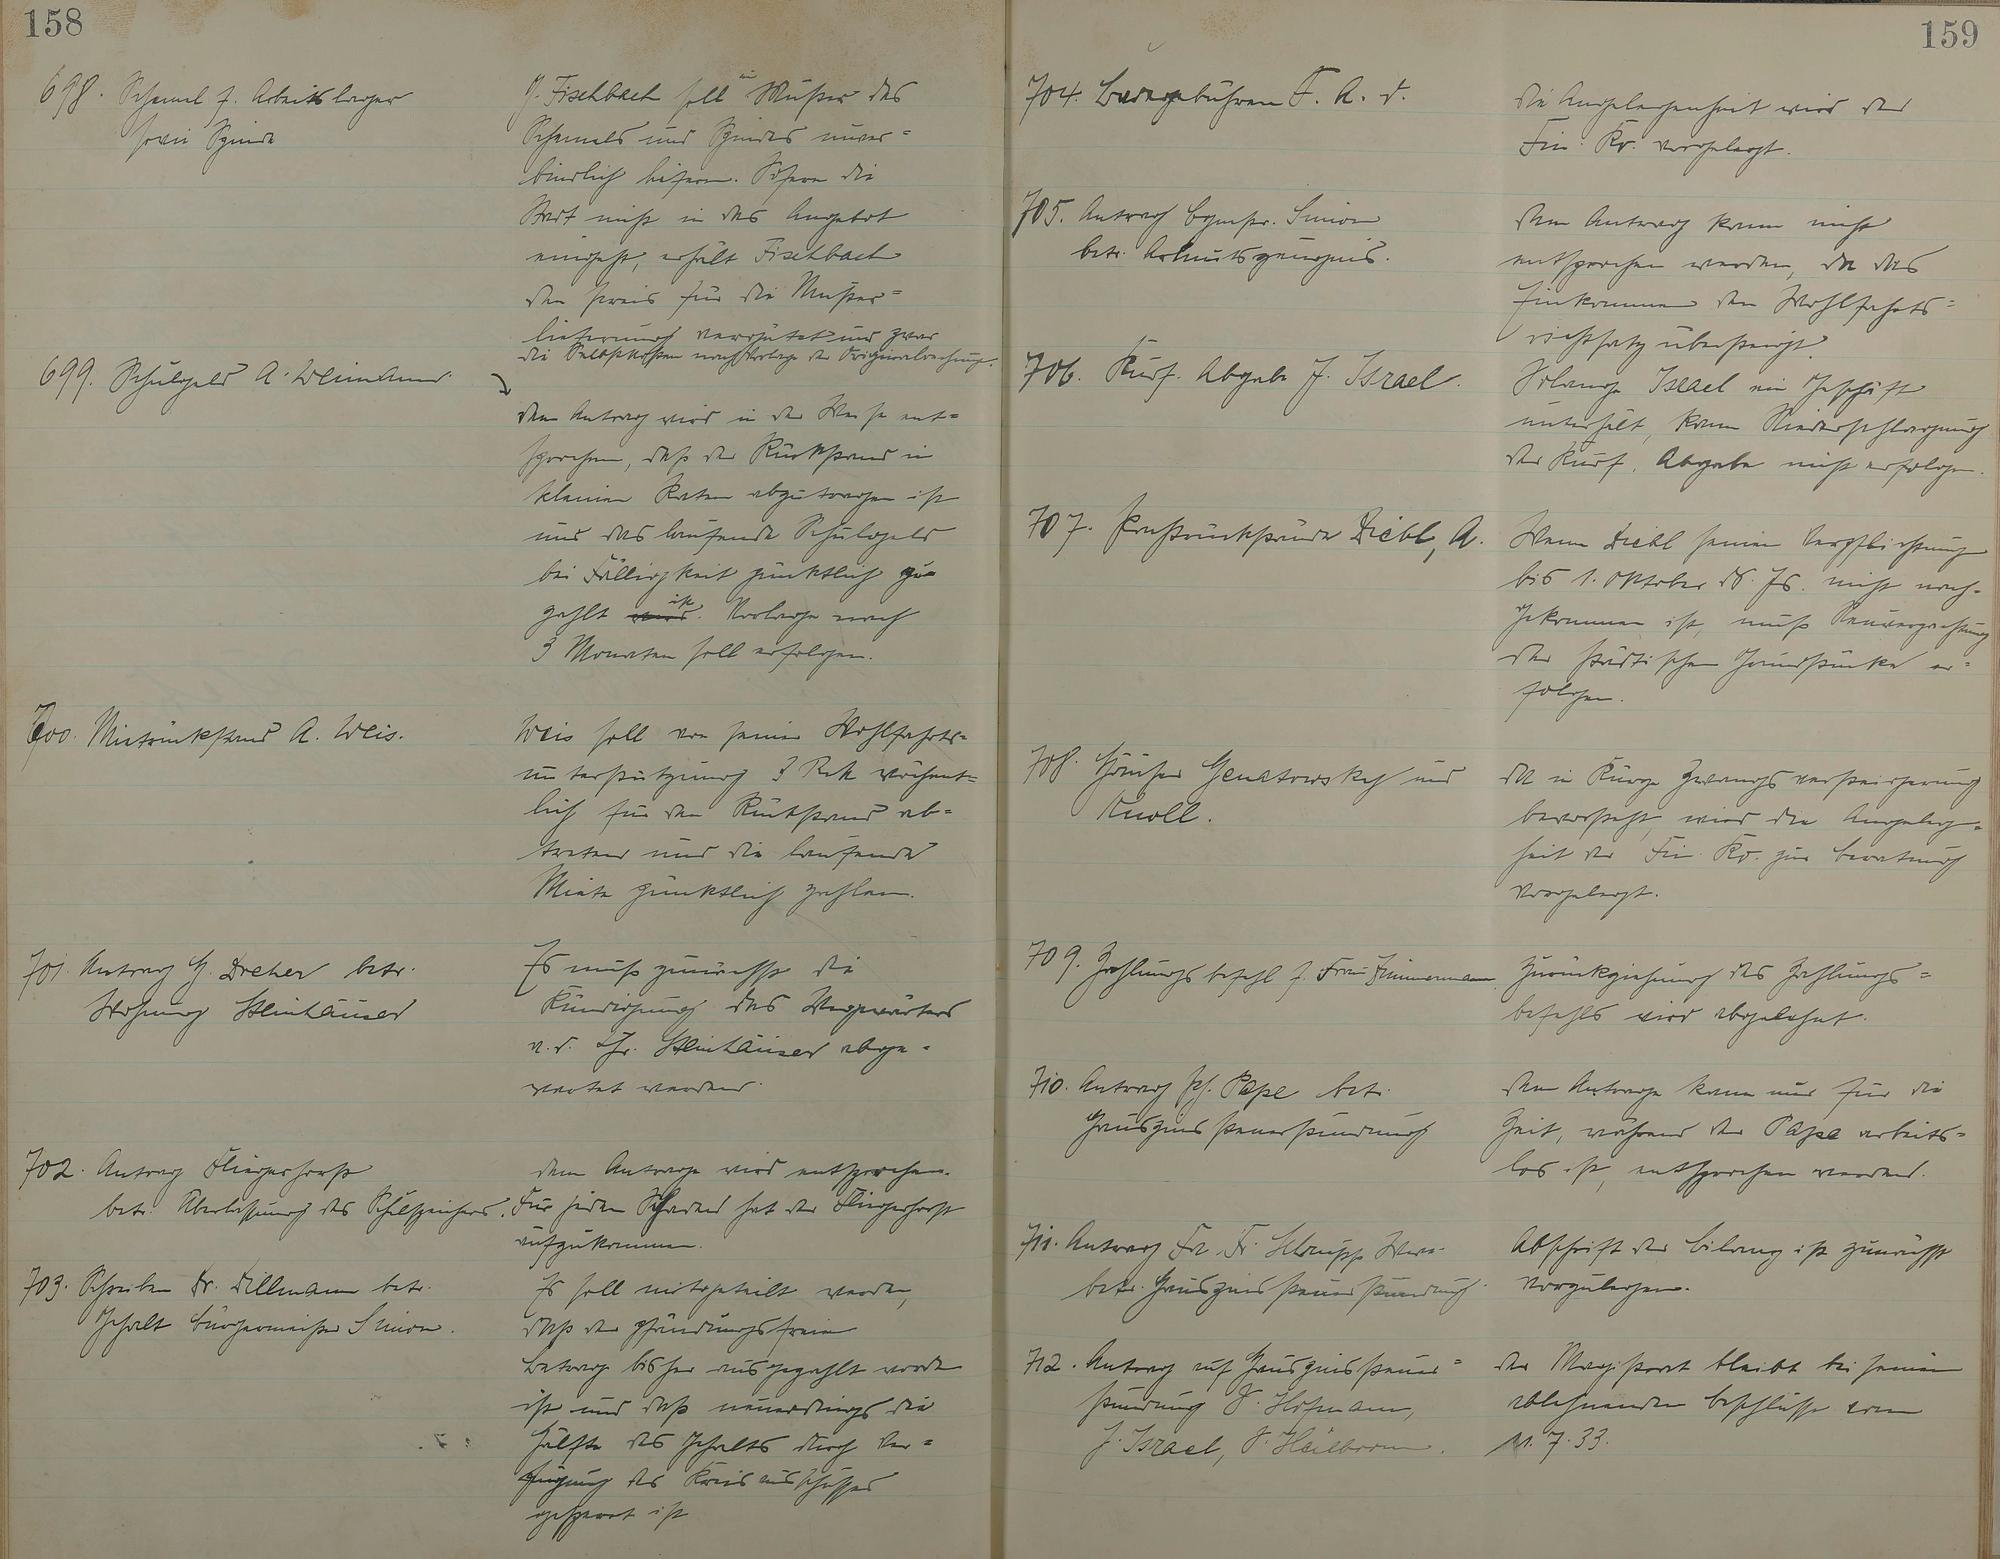 158
698. Schemel f. Arbeitslager
sowie Spinde
J. Fischbach soll ein Muster des
Schemels und Spindes unver=
bindlich liefern. Sofern die
Stadt nicht in das Angebot
eingeht, erhält Fischbach
den Preis für die Muster=
lieferung vergütet und zwar
die Selbstkosten nach Vorlage der Originalrechnung.
699. Schulgeld A. Weimann.
Dem Antrag wird in der Weise ent=
sprochen, daß der Rückstand in
kleinen Raten abzutragen ist
und das laufende Schulgeld
bei Fälligkeit pünktlich ge
zahlt ist. Vorlage nach
3 Monaten soll erfolgen.
700. Mietrückstand A. Weis.
Weis soll von seiner Wohlfahrts=
unterstützung 3 Rm wöchent=
lich für den Rückstand ab=
treten und die laufende
Miete pünktlich zahlen.
701. Antrag H. Dreher betr.
Wohnung Steinhäuser
Es muß zunächst die
Kündigung des Wegewärters
a. d. Chr. Steinhäuser abge=
wartet werden.
702. Antrag Fliegerhorst
betr. Überlassung des Schulspeichers.
Dem Antrage wird entsprochen.
Für jeden Schaden hat der Fliegerhorst
aufzukommen.
703. Schreiben Dr. Dillmann betr.
Gehalt Bürgermeister Simon.
Es soll mitgeteilt werden,
daß der pfändungsfreie
Betrag bisher ausgezahlt worden
ist und daß neuerdings die
Hälfte des Gehalts durch Ver=
fügung des Kreisausschusses
gesperrt ist
159
704. Badegebühren F. A. D.
Die Angelegenheit wird der
Fin. Ko. vorgelegt.
705. Antrag Bgmstr. Simon
betr. Armutszeugnis.
Dem Antrag kann nicht
entsprochen werden, da das
Einkommen den Wohlfahrts=
richtsatz übersteigt.
706. Kurf. Abgabe J. Israel.
Solange Israel ein Geschäft
unterhält, kann Niederschlagung
der Kurf. Abgabe nicht erfolgen.
707. Pachtrückstände Diehl, A.
Wenn Diehl seinen Verpflichtungen
bis 1. Oktober ds. Js. nicht nach=
gekommen ist, muß Neuverpachtung
der städtischen Grundstücke er=
folgen.
708. Häuser Genatowsky und
Knoll.
Da in Kürze Zwangsversteigerung
bevorsteht, wird die Angelegen=
heit der Fin. Ko. zur Beratung
vorgelegt.
709. Zahlungsbefehl f. Frau Zimmermann.
Zurückziehung des Zahlungs=
befehls wird abgelehnt.
710. Antrag Ph. Pape betr.
Hauszinssteuerstundung
Dem Antrage kann nur für die
Zeit, während der Pape arbeits=
los ist, entsprochen werden.
711. Antrag Fr. Fr. Schnupp Wwe.
betr. Hauszinssteuerstundung.
Abschrift der Bilanz ist zunächst
vorzulegen.
712. Antrag auf Hauszinssteuer=
stundung S. Hofmann,
J. Israel, S. Heilbronn.
Der Magistrat bleibt bei seinem
ablehnenden Beschlusse vom
11. 7. 33.